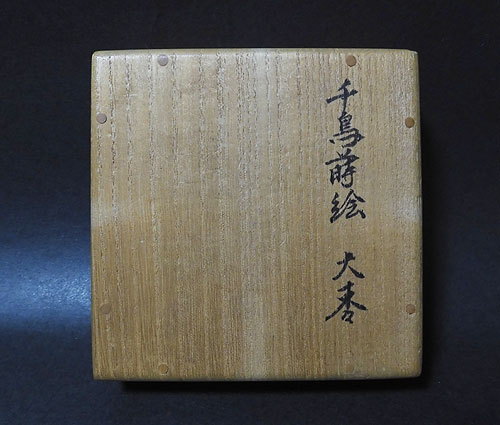 千鳥蒔絵 大棗